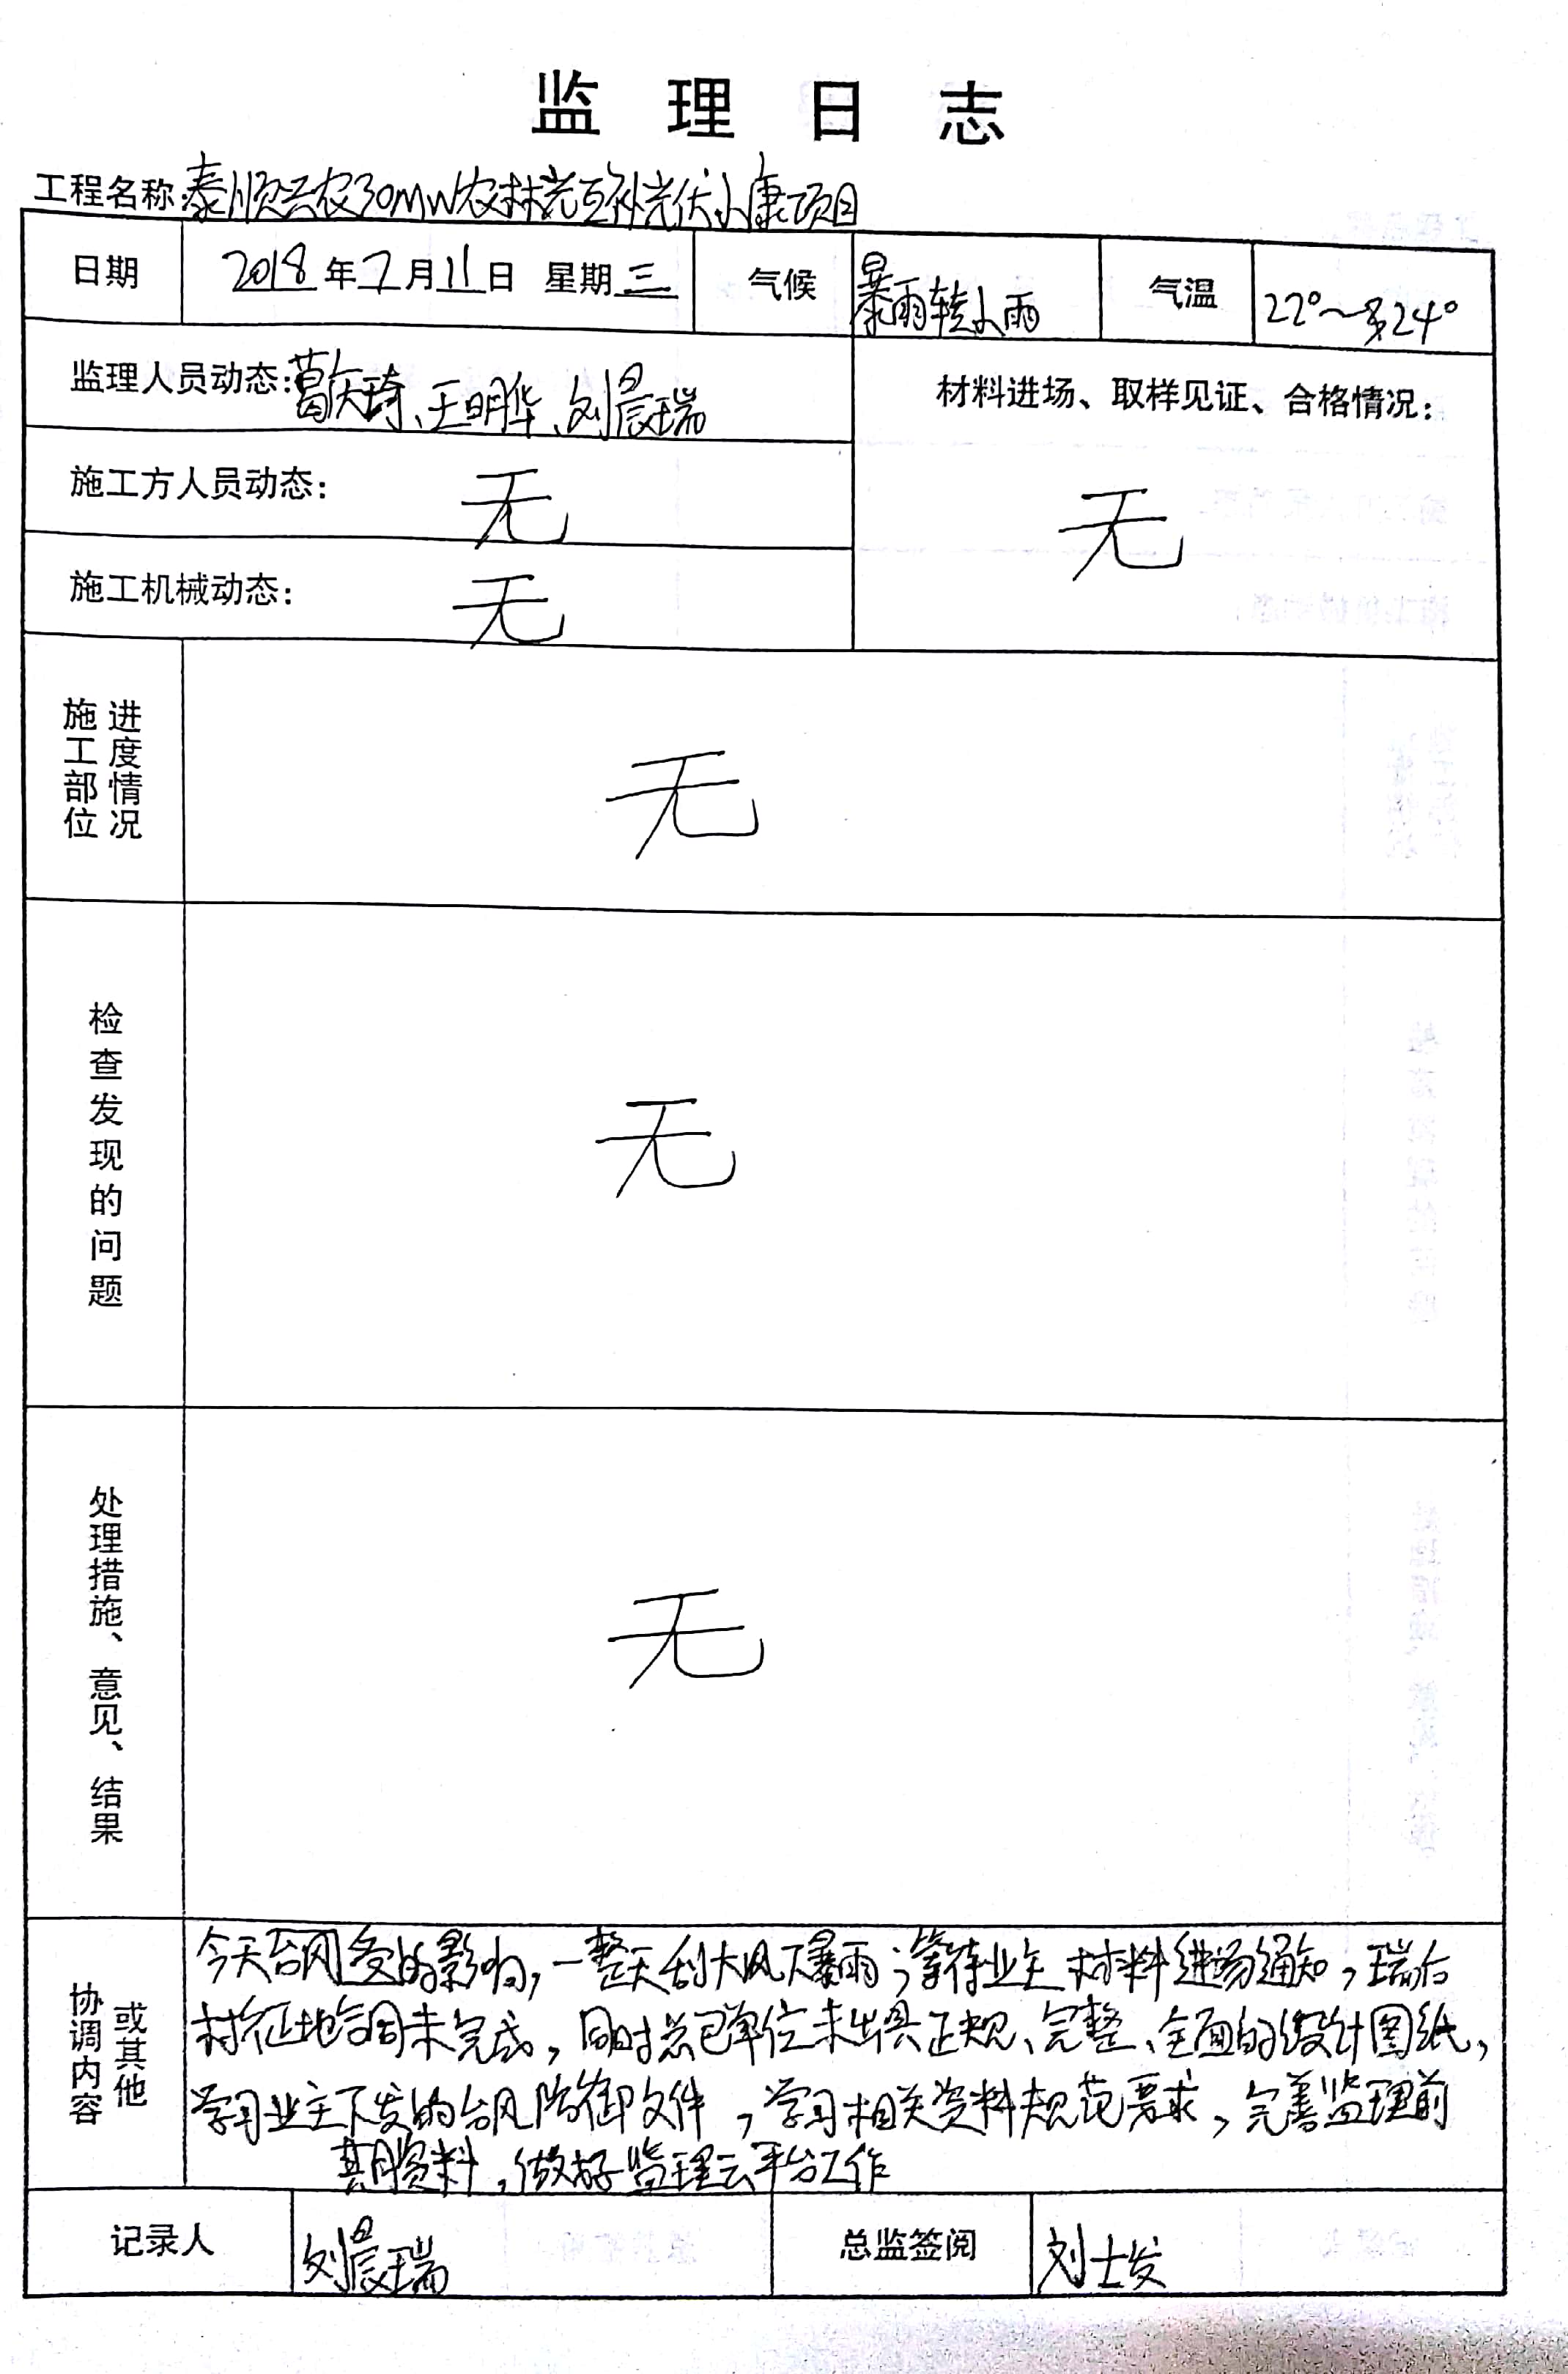 监理日志
工程名称:泰顺云农30MW农林光互补光伏小康项目
日期 2018年7月11日 星期三 气候 暴雨转小雨 气温 22°~24°
监理人员动态:葛庆琦、王明华、刘晨瑞 材料进场、取样见证、合格情况:
施工方人员动态: 无 无
施工机械动态: 无
施工部位 进度情况 无
检查发现的问题 无
处理措施、意见、结果 无
协调内容 或其他
今天台风受的影响,一整天刮大风下暴雨;等待业主材料进场通知,瑞后
村征地合同未完成,同时总包单位未出具正规、完整、全面的设计图纸,
学习业主下发的台风防御文件,学习相关资料规范要求,完善监理前
期资料,做好监理云平台工作
记录人 刘晨瑞 总监签阅 刘士发